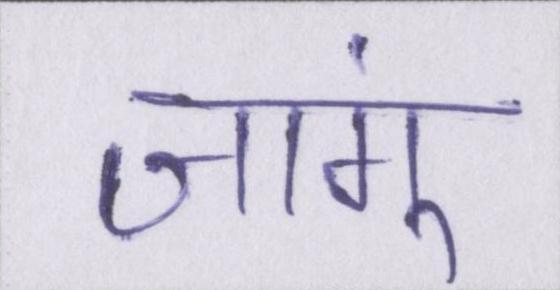 जागूं